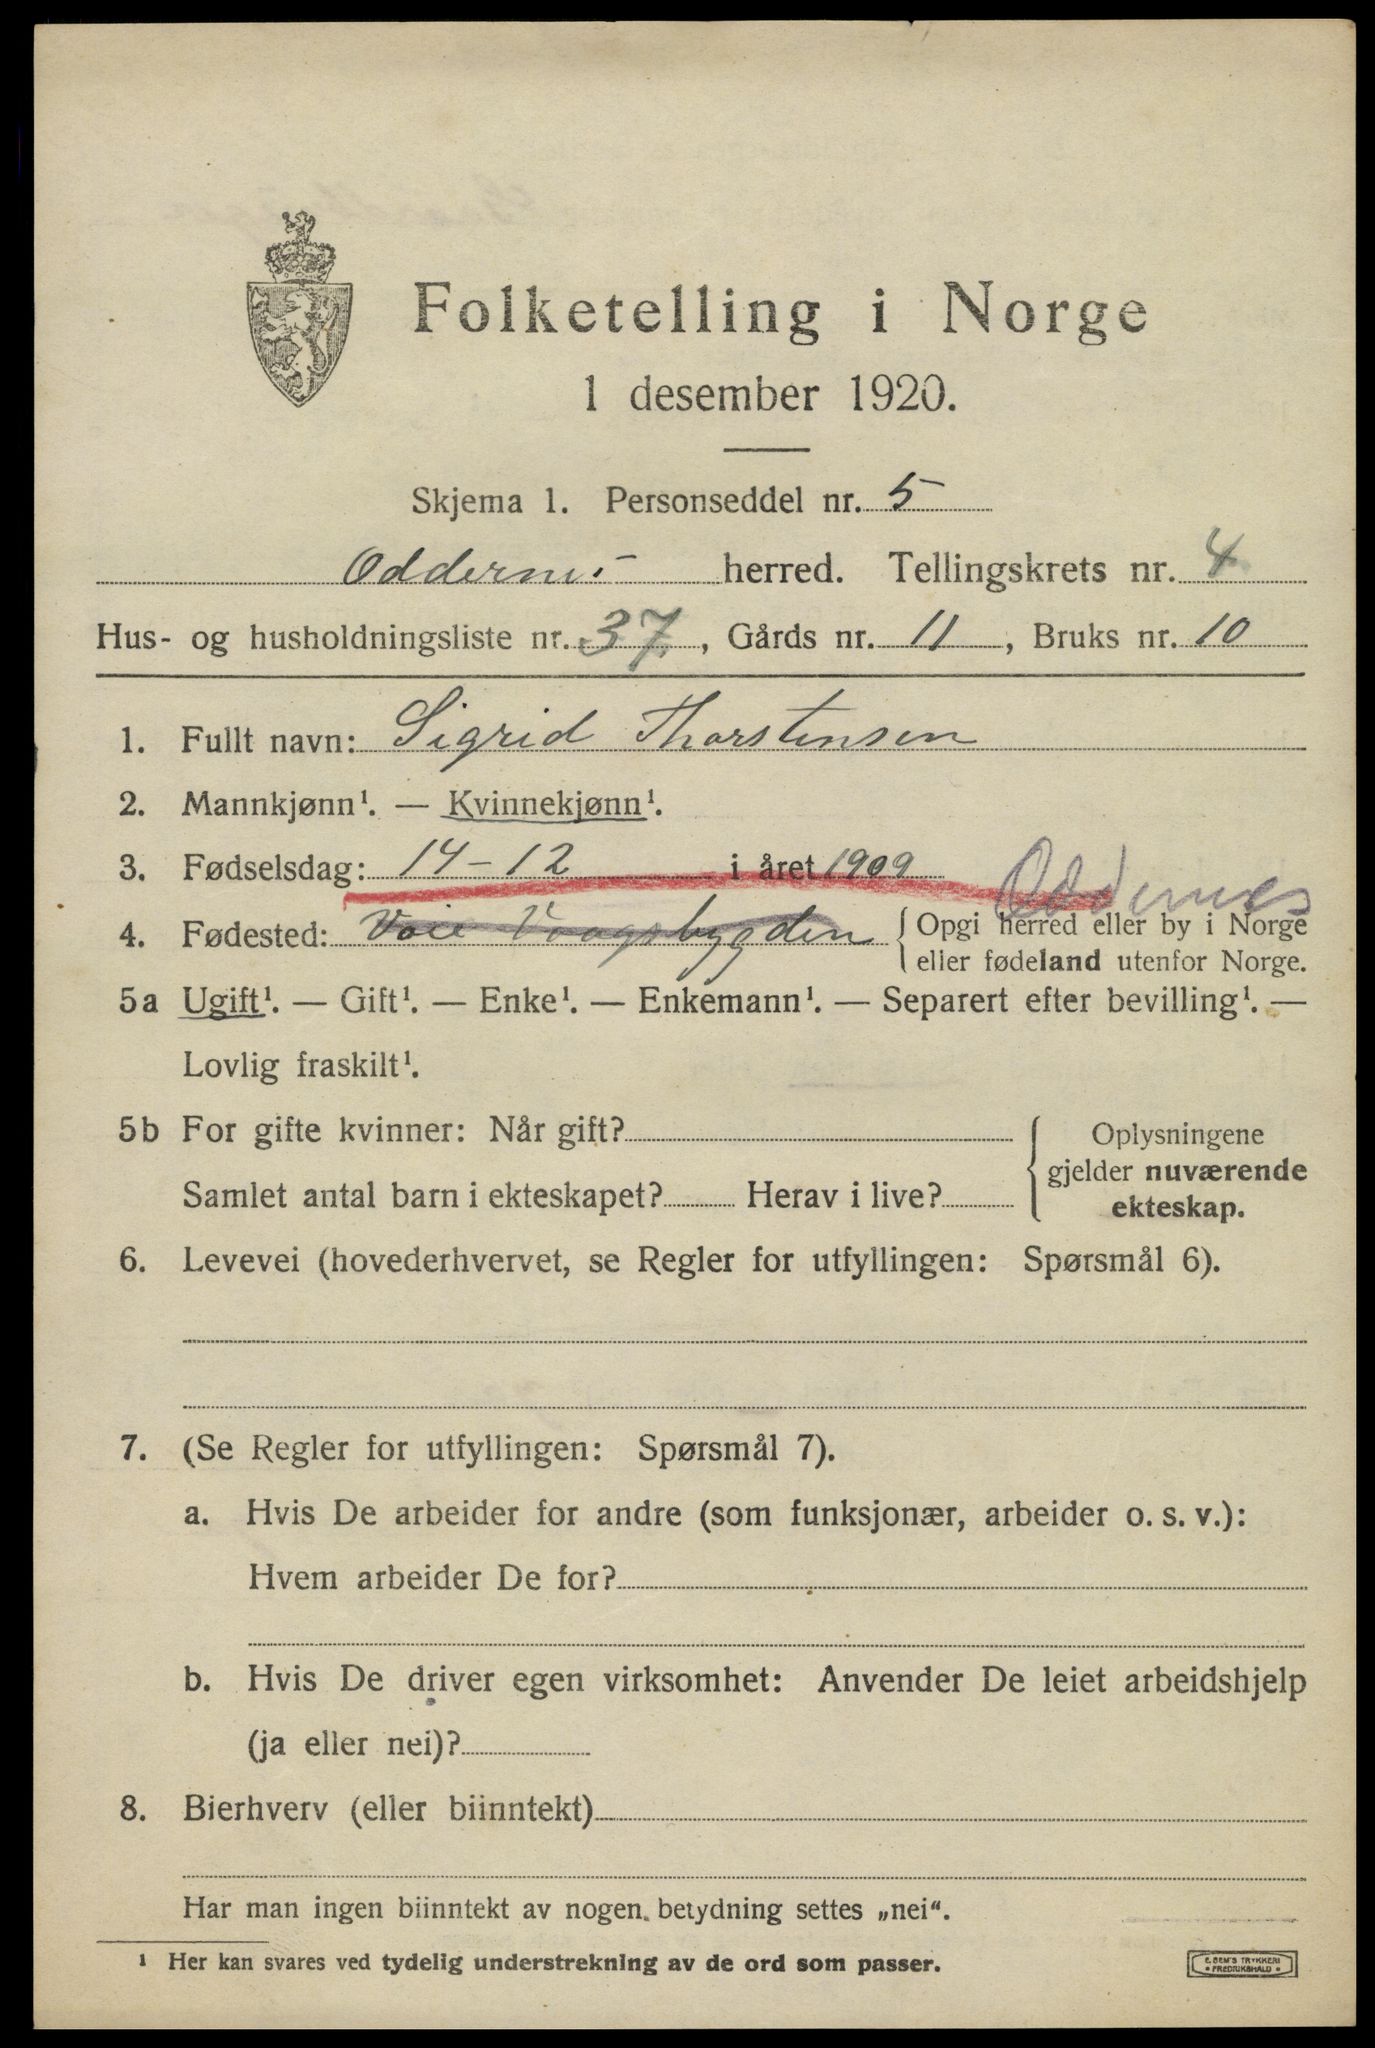 Folketelling i Norge
1 desember 1920.
Skjema 1. Personseddel nr. 5
Oddernes herred. Tellingskrets nr. 4
Hus- og husholdningsliste nr. 37, Gårds nr. 11, Bruks nr. 10
1. Fullt navn: Sigrid Thorstensen
2. Mannkjønn¹. — Kvinnekjønn¹.
3. Fødselsdag: 14-12 i året 1909
Oddernes
4. Fødested: Voie Vaagsbygden { Opgi herred eller by i Norge
eller fødeland utenfor Norge.
5a Ugift¹. — Gift¹. — Enke¹. — Enkemann¹. — Separert efter bevilling¹. —
Lovlig fraskilt¹.
5b For gifte kvinner: Når gift?
Samlet antal barn i ekteskapet? Herav i live?
{ Oplysningene
gjelder nuværende
ekteskap.
6. Levevei (hovederhvervet, se Regler for utfyllingen: Spørsmål 6).
7. (Se Regler for utfyllingen: Spørsmål 7).
a. Hvis De arbeider for andre (som funksjonær, arbeider o. s. v.):
Hvem arbeider De for?
b. Hvis De driver egen virksomhet: Anvender De leiet arbeidshjelp
(ja eller nei)?
8. Bierhverv (eller biinntekt)
Har man ingen biinntekt av nogen betydning settes „nei".
¹ Her kan svares ved tydelig understrekning av de ord som passer.
E. SEM'S TRYKKERI
• FREDRIKSHALD •